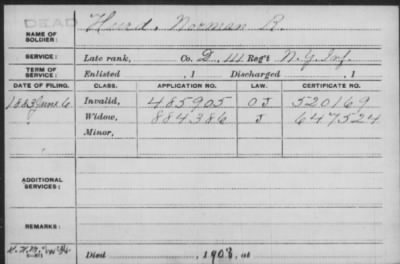 DEAD
NAME OF SOLDIER: Hurd, Norman R.
SERVICE: Late rank, Co. D, 111 Reg't N.Y. Inf.
TERM OF SERVICE: Enlisted , 1 Discharged , 1
DATE OF FILING. CLASS. APPLICATION NO. LAW. CERTIFICATE NO.
1883 June 6. Invalid, 485905 O J 520169
Widow, 884386 J 647524
Minor,
ADDITIONAL SERVICES:
REMARKS:
Died , 1908, at